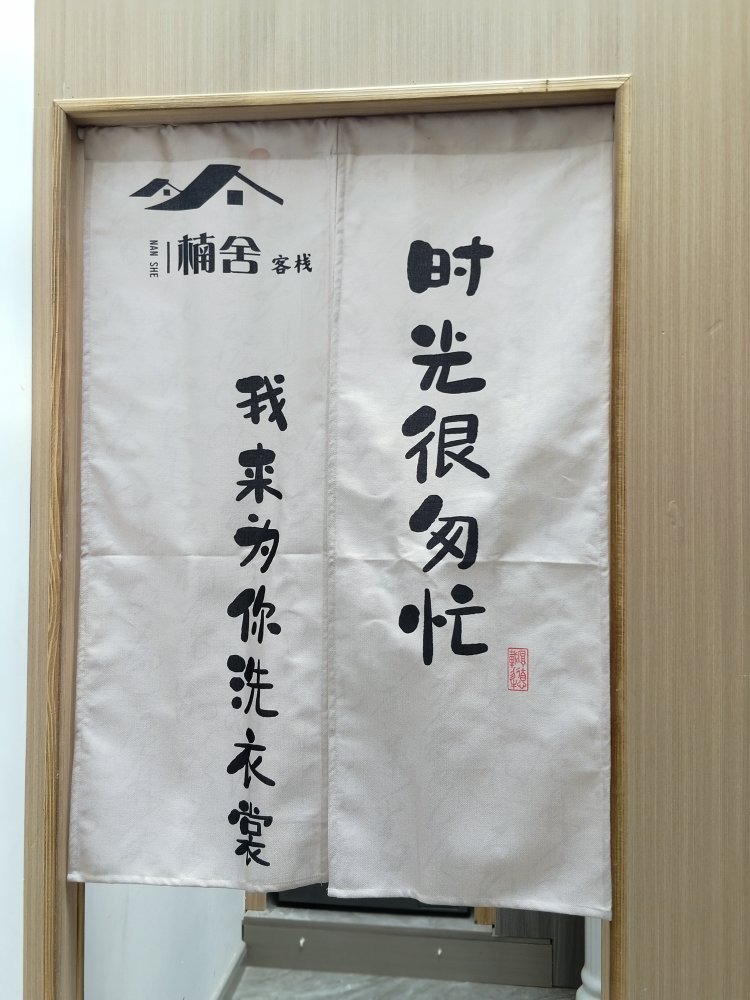 楠舍 客栈
NAN SHE
时光很匆忙
我来为你洗衣裳